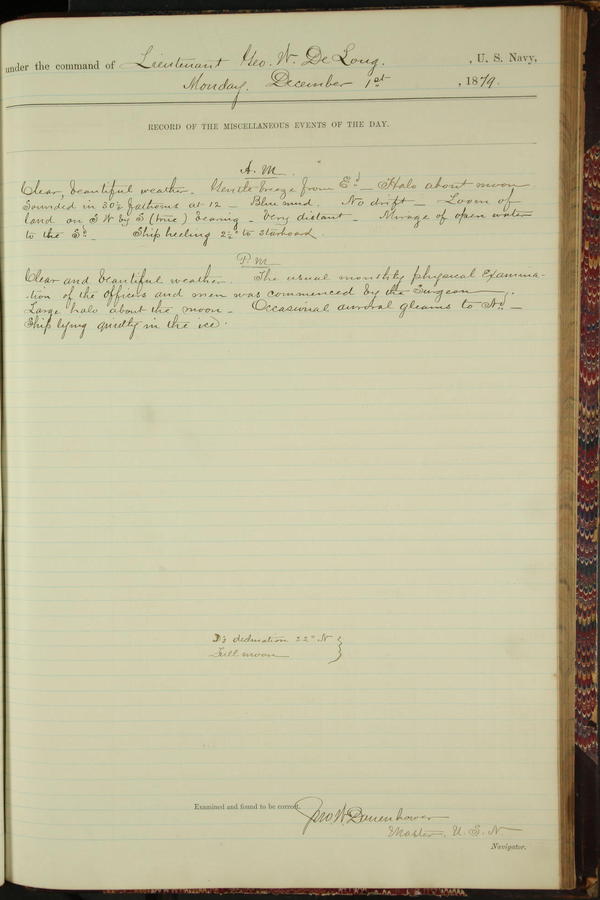 under the command of Lieutenant Geo. W. De Long. , U. S. Navy,
Monday, December 1st , 1879.
RECORD OF THE MISCELLANEOUS EVENTS OF THE DAY.
A. M.
Clear, beautiful weather. Gentle breeze from Ed — Halo about moon
Sounded in 30½ fathoms at 12 — Blue mud. No drift — Loom of
land on S W by S (true) bearing — Very distant — Mirage of open water
to the Ed — Ship heeling 2½° to starboard.
P. M.
Clear and beautiful weather. The usual monthly physical Examina-
tion of the officers and men was commenced by the Surgeon.
Large halo about the moon — Occasional auroral gleams to Nd —
Ship lying quietly in the ice.
D's declination 22° N }
Full moon
Examined and found to be correct. Jno W Danenhower
Master, U. S. N
Navigator.